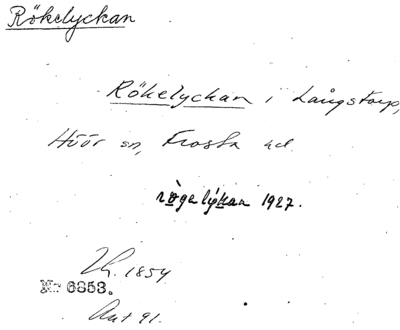 Rökelyckan
Rökelyckan i Långstorp,
Höör sn, Frosta hd
rö̀gelýkan 1927.
1854
Nr 6853.
Ant 91.